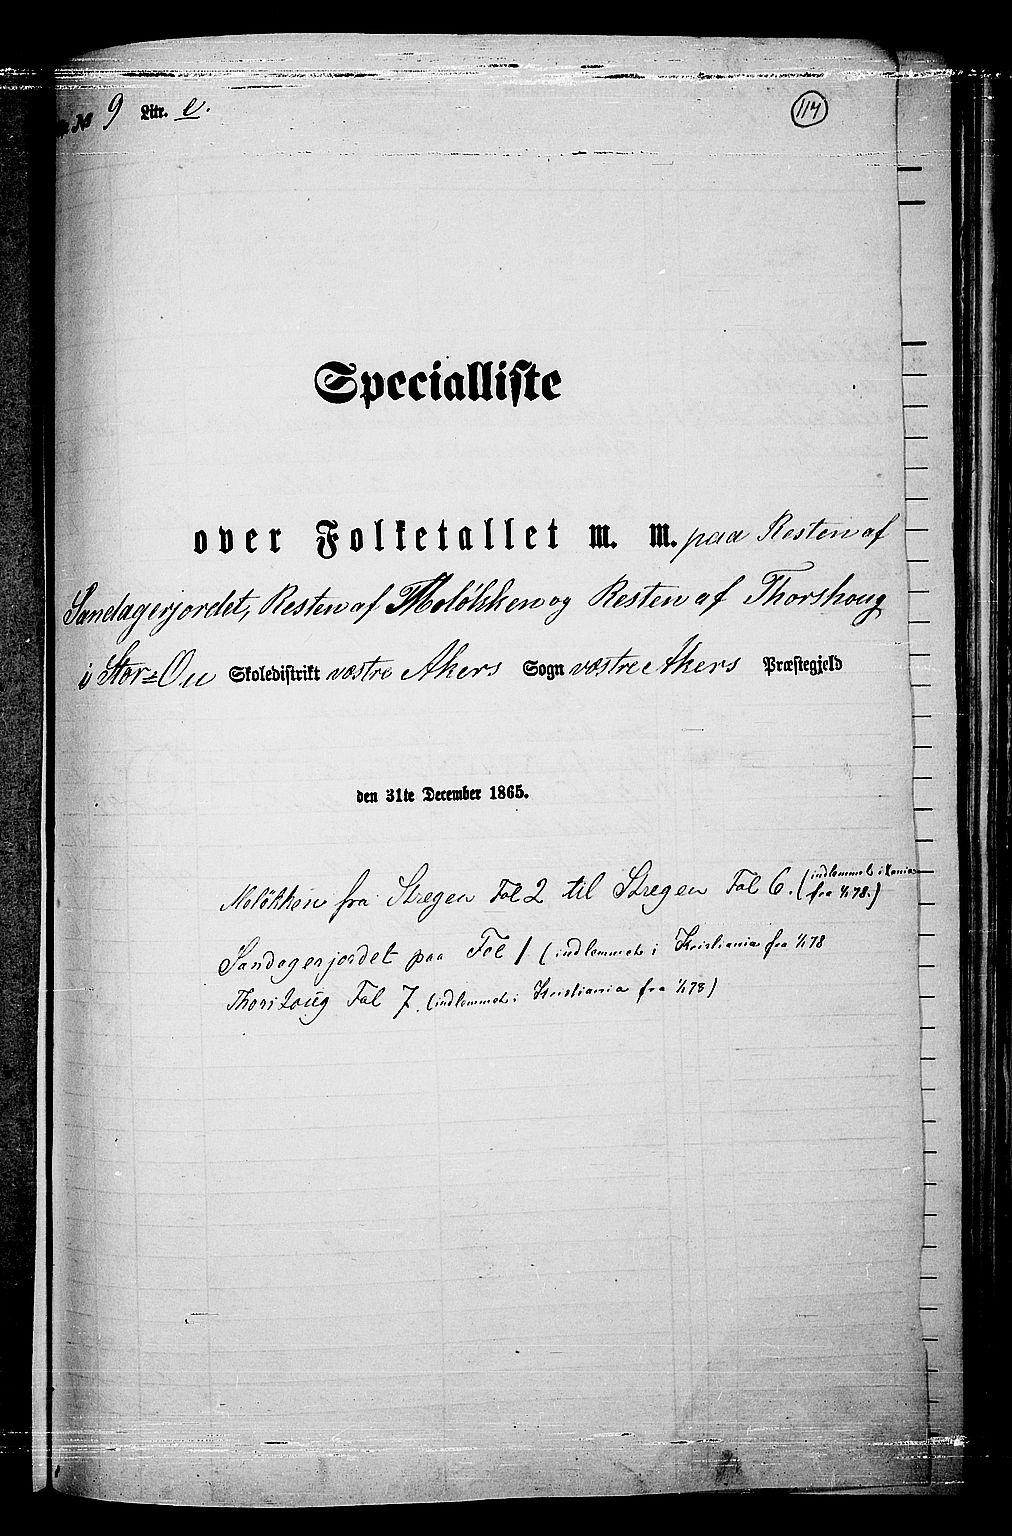 № 9 Litr. e.
117
Specialliste
over Folketallet m. m. paa Resten af
Sandagerjordet, Resten af Moløkken og Resten af Thorshoug
i Stor=Ou Skoledistrikt væstre Akers Sogn væstre Akers Præstegjeld
den 31te December 1865.
Moløkken fra Stregen Fol 2 til Stregen Fol 6. (indlemmet i Xania fra 1/1 78.)
Sandagerjordet paa Fol 1 (indlemmet i Kristiania fra 1/1 78
Thorshoug Fol 7. (indlemmet i Kristiania fra 1/1 78)